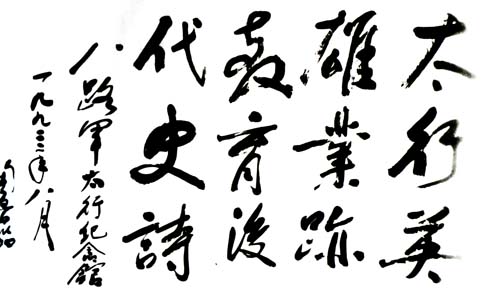 太行英
雄業跡
教育後
代史詩
八路軍太行紀念館
一九九三年八月